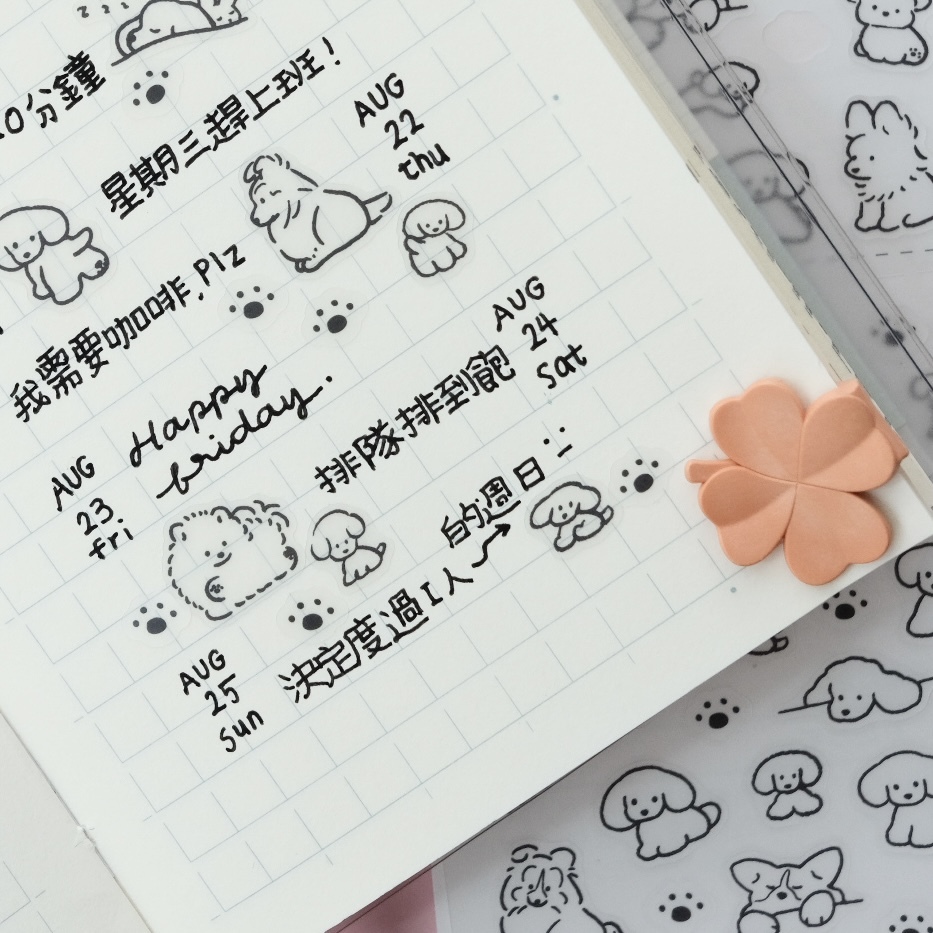 z z z
0分鐘
星期三趕上班！
AUG
22
thu
我需要咖啡，Plz
AUG
23
fri
Happy
friday.
AUG
24
sat
排隊排到飽
AUG
25
sun
決定度過I人
的週日